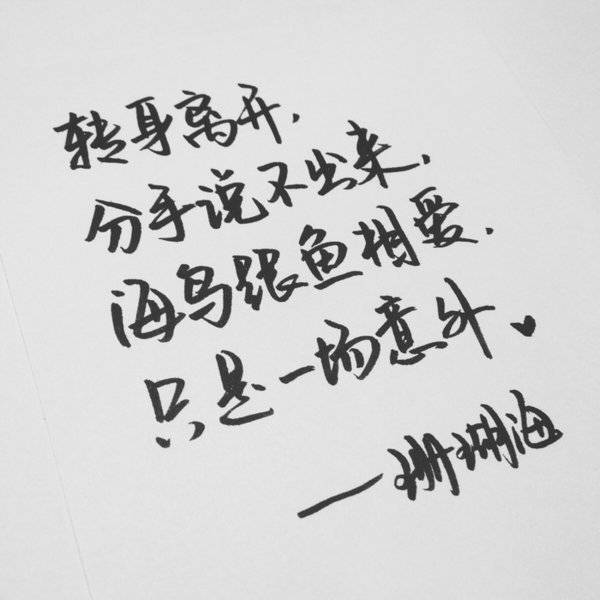 转身离开，
分手说不出来，
海鸟跟鱼相爱，
只是一场意外。
—珊瑚海